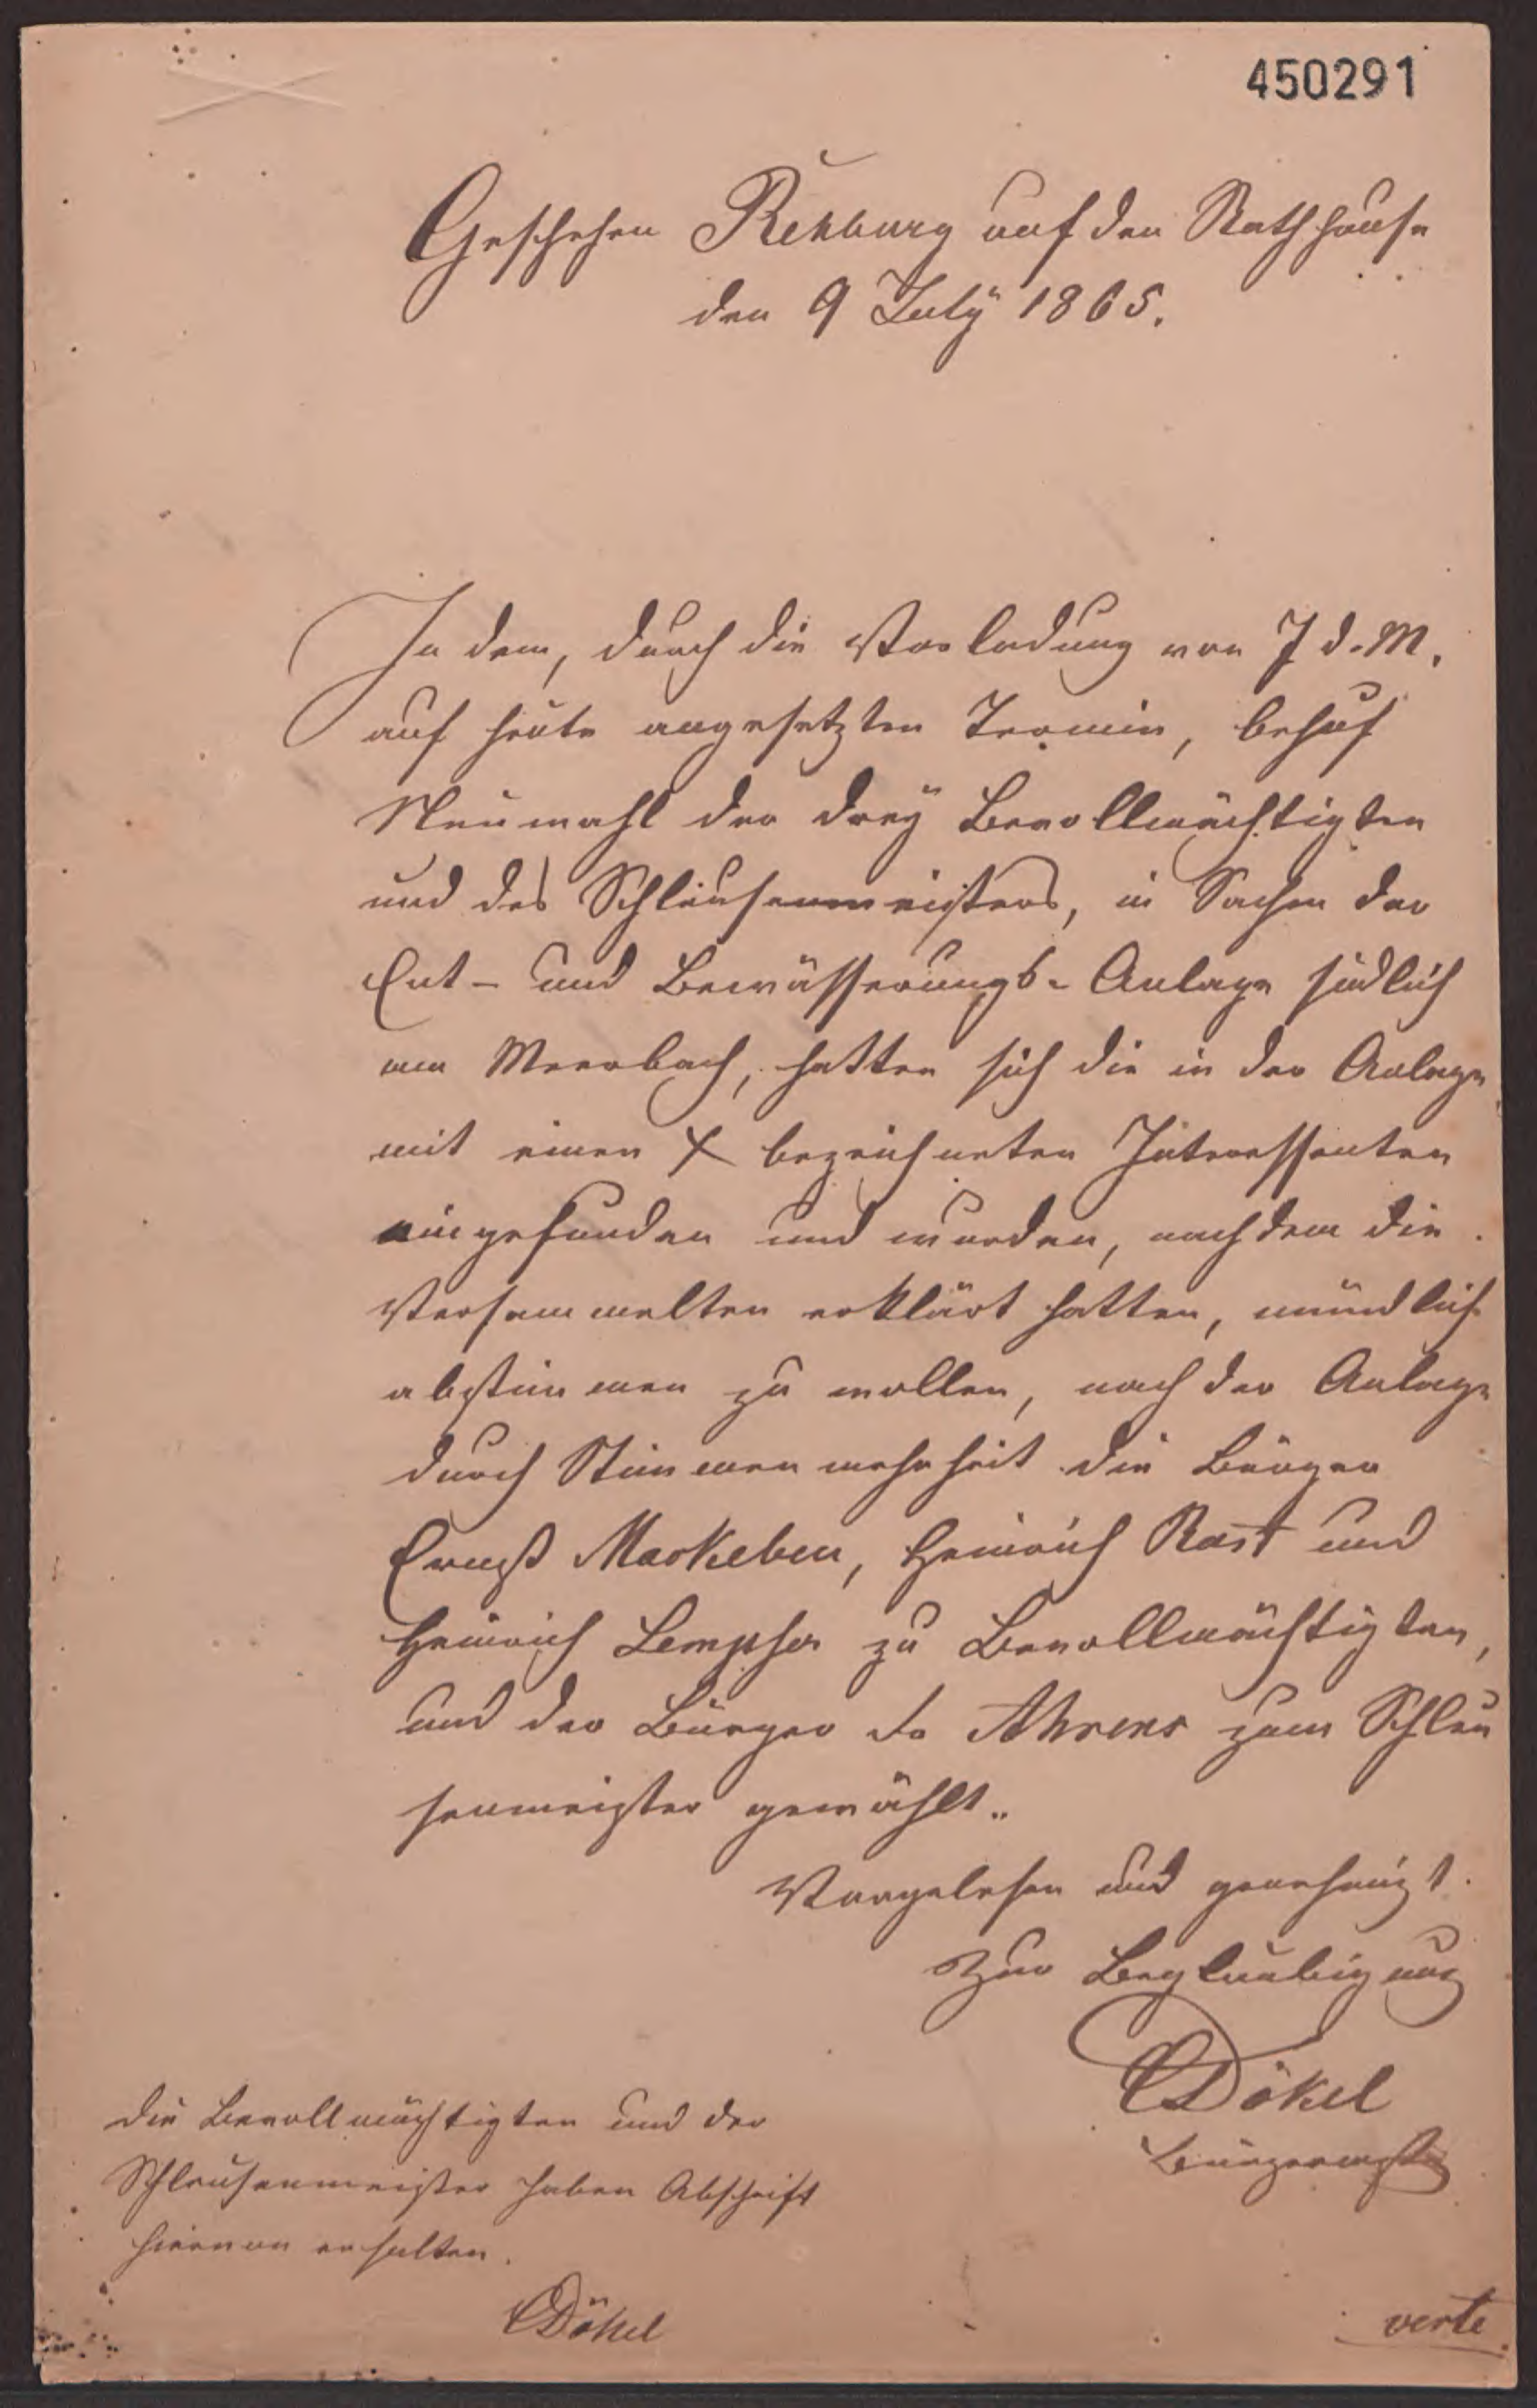 450291
Geschehen Rehburg auf den Rathhause
den 9 July 1865.
In dem, durch die Vorladung von 7 d. M.
auf heute angesetzten Termin, behuf
Neuwahl der drey Bevollmächtigten
und des Schleusenmeisters, in Sachen der
Ent- und Bewässerungs-Anlage südlich
am Meerbach, hatten sich die in der Anlage
mit einen X bezeichneten Interessenten
eingefunden und wurden, nachdem die
Versammelten erklärt hatten, mündlich
abstimmen zu wollen, nach der Anlage
durch Stimmenmehrheit die Bürger
Ernst Markeben, Heinrich Rast und
Heinrich Lempfer zu Bevollmächtigten,
und der Bürger Ahrens zum Schleu
senmeister gewählt.
Vorgelesen und genehmigt.
Zur Beglaubigung
Dökel
Bürgermstr
Die Bevollmächtigten und der
Schleusenmeister haben Abschrift
hiervon erhalten.
Dökel
verte.